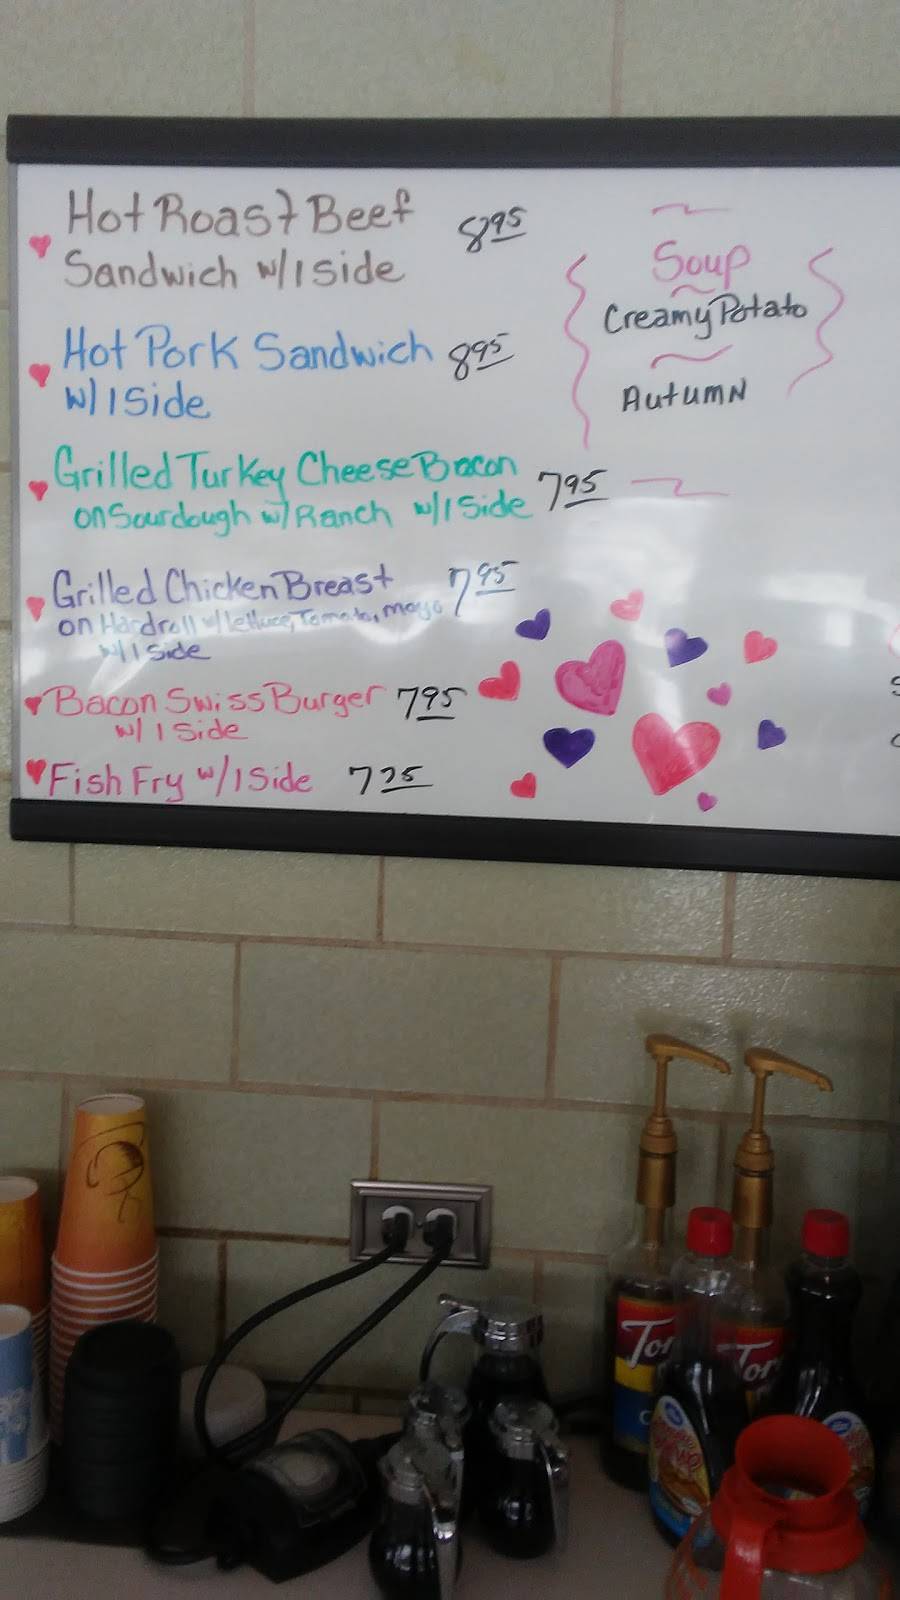 Hot Roast Beef
Sandwich w/1 Side 8.95
Hot Pork Sandwich 8.95
w/1 Side
Grilled Turkey Cheese Bacon
on Sourdough w/Ranch w/1 Side 7.95
Grilled Chicken Breast 7.95
on Hardroll w/Lettuce, Tomato, mayo
w/1 Side
Bacon Swiss Burger 7.95
w/1 Side
Fish Fry w/1 Side
Soup
Creamy Potato
Autumn
Tor
Tor